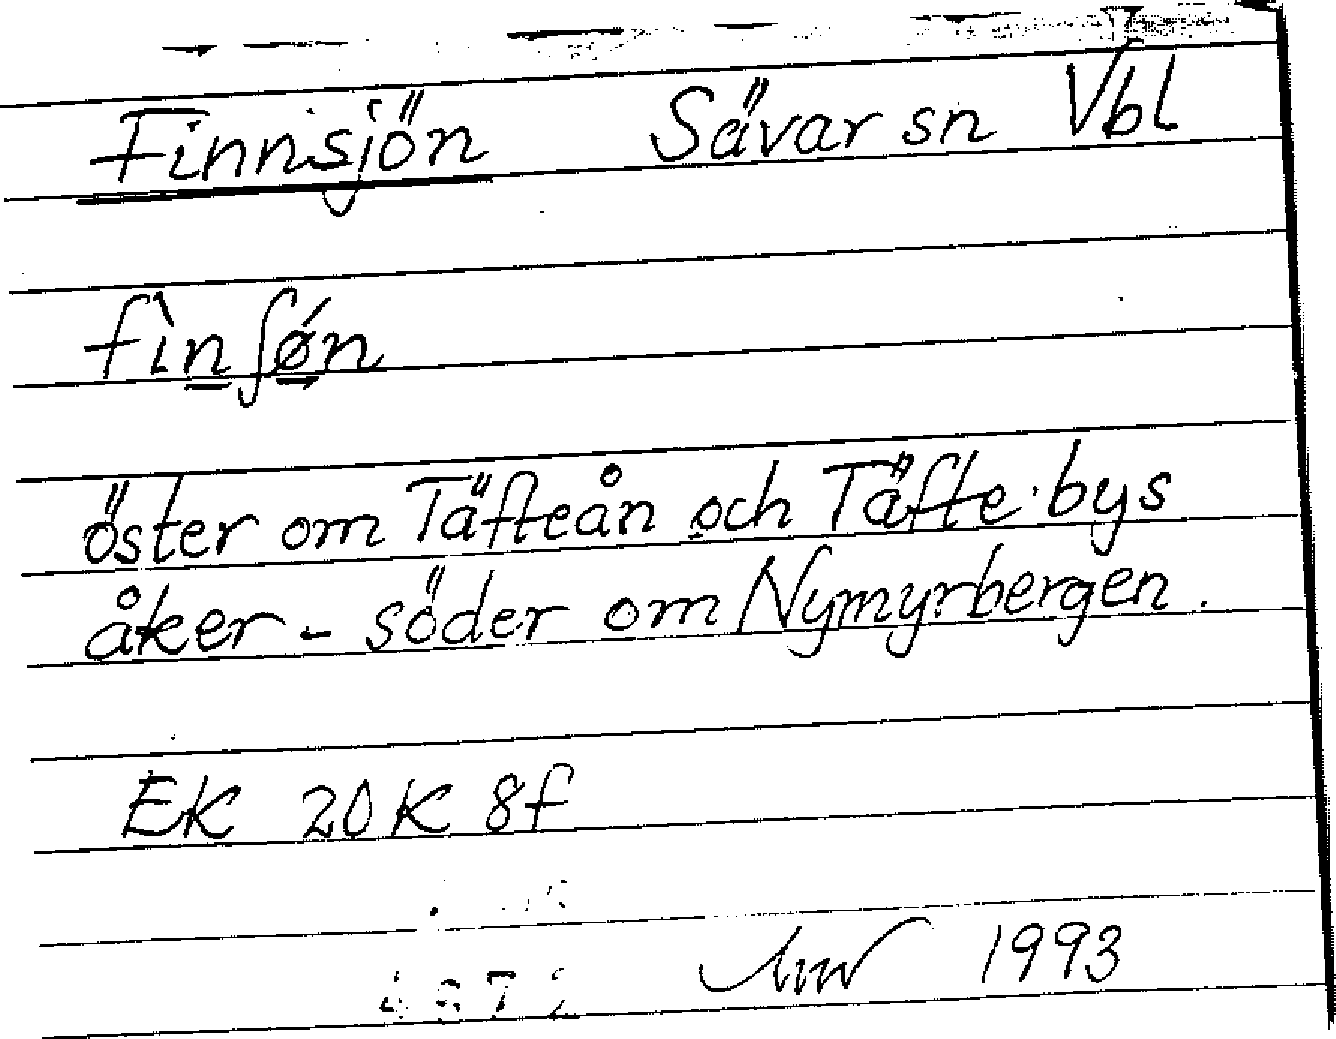 Finnsjön Sävar sn Vbl
fìnʃǿn
öster om Täfteån och Täfte bys
åker - söder om Nymyrbergen.
EK 20K 8f
1993